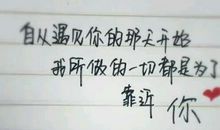 自从遇见你的那天开始
我所做的一切都是为了
靠近 你